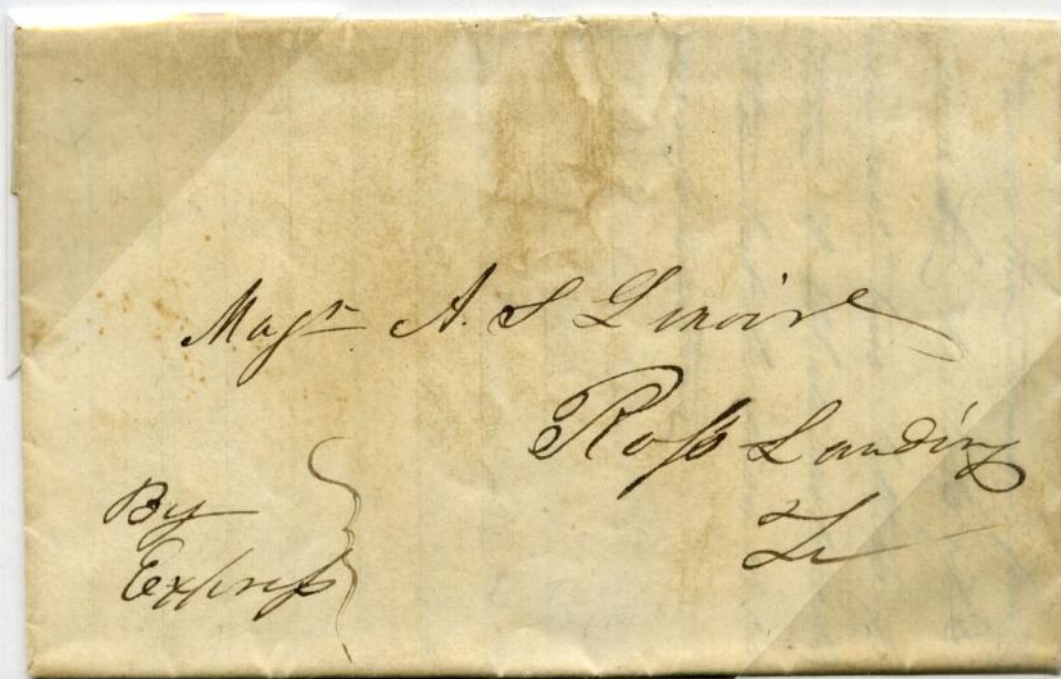 Majr A. S Lenoir
Ross Landing
Te
By
Express